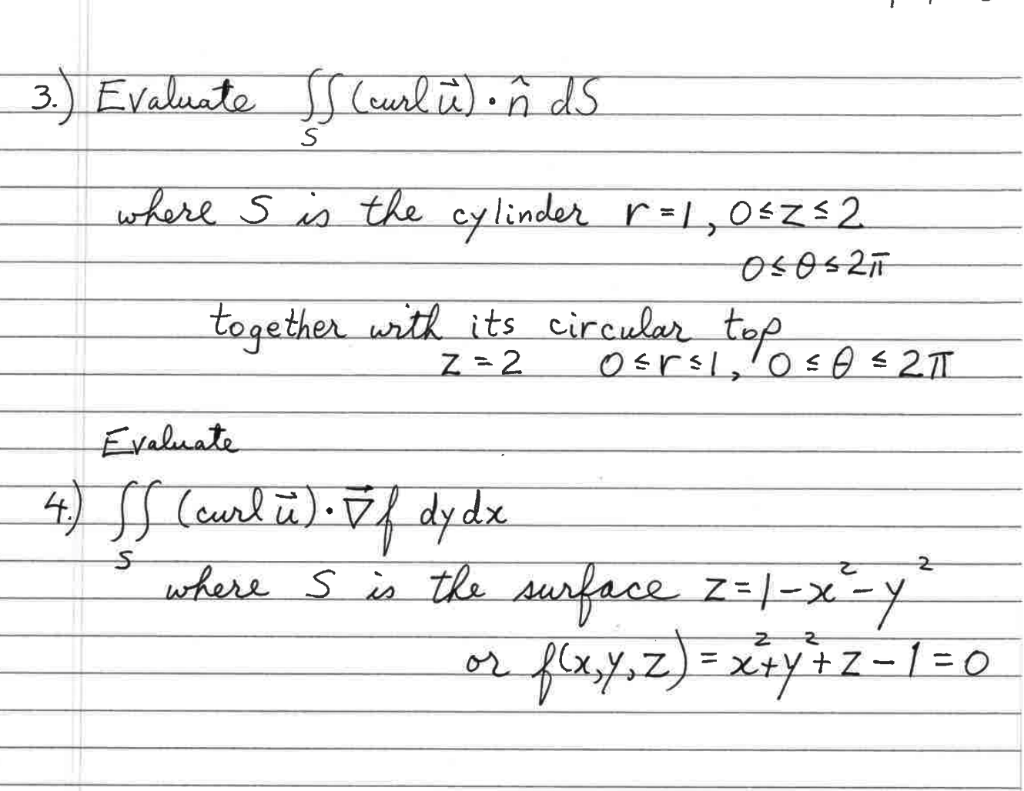 3.) Evaluate ∬ (curl u⃗) · n̂ dS
S
where S is the cylinder r = 1, 0 ≤ z ≤ 2
0 ≤ θ ≤ 2π
together with its circular top
z = 2 0 ≤ r ≤ 1, 0 ≤ θ ≤ 2π
Evaluate
4.) ∬ (curl u⃗) · ∇⃗f dy dx
S
where S is the surface z = 1 - x² - y²
or f(x,y,z) = x² + y² + z - 1 = 0